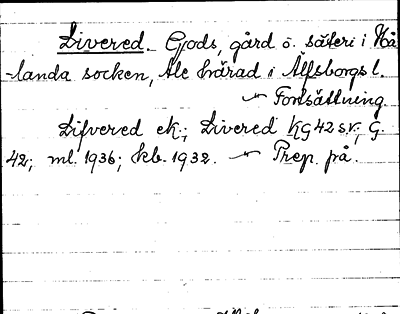 Livered. Gods, gård o. säteri i Hå
-landa socken, Ale härad i Älfsborgs l.
~ Fortsättning.
Lifvered ek.; Livered KG42 sv; G.
42; ml. 1936; kb. 1932. ~ Prep. på.